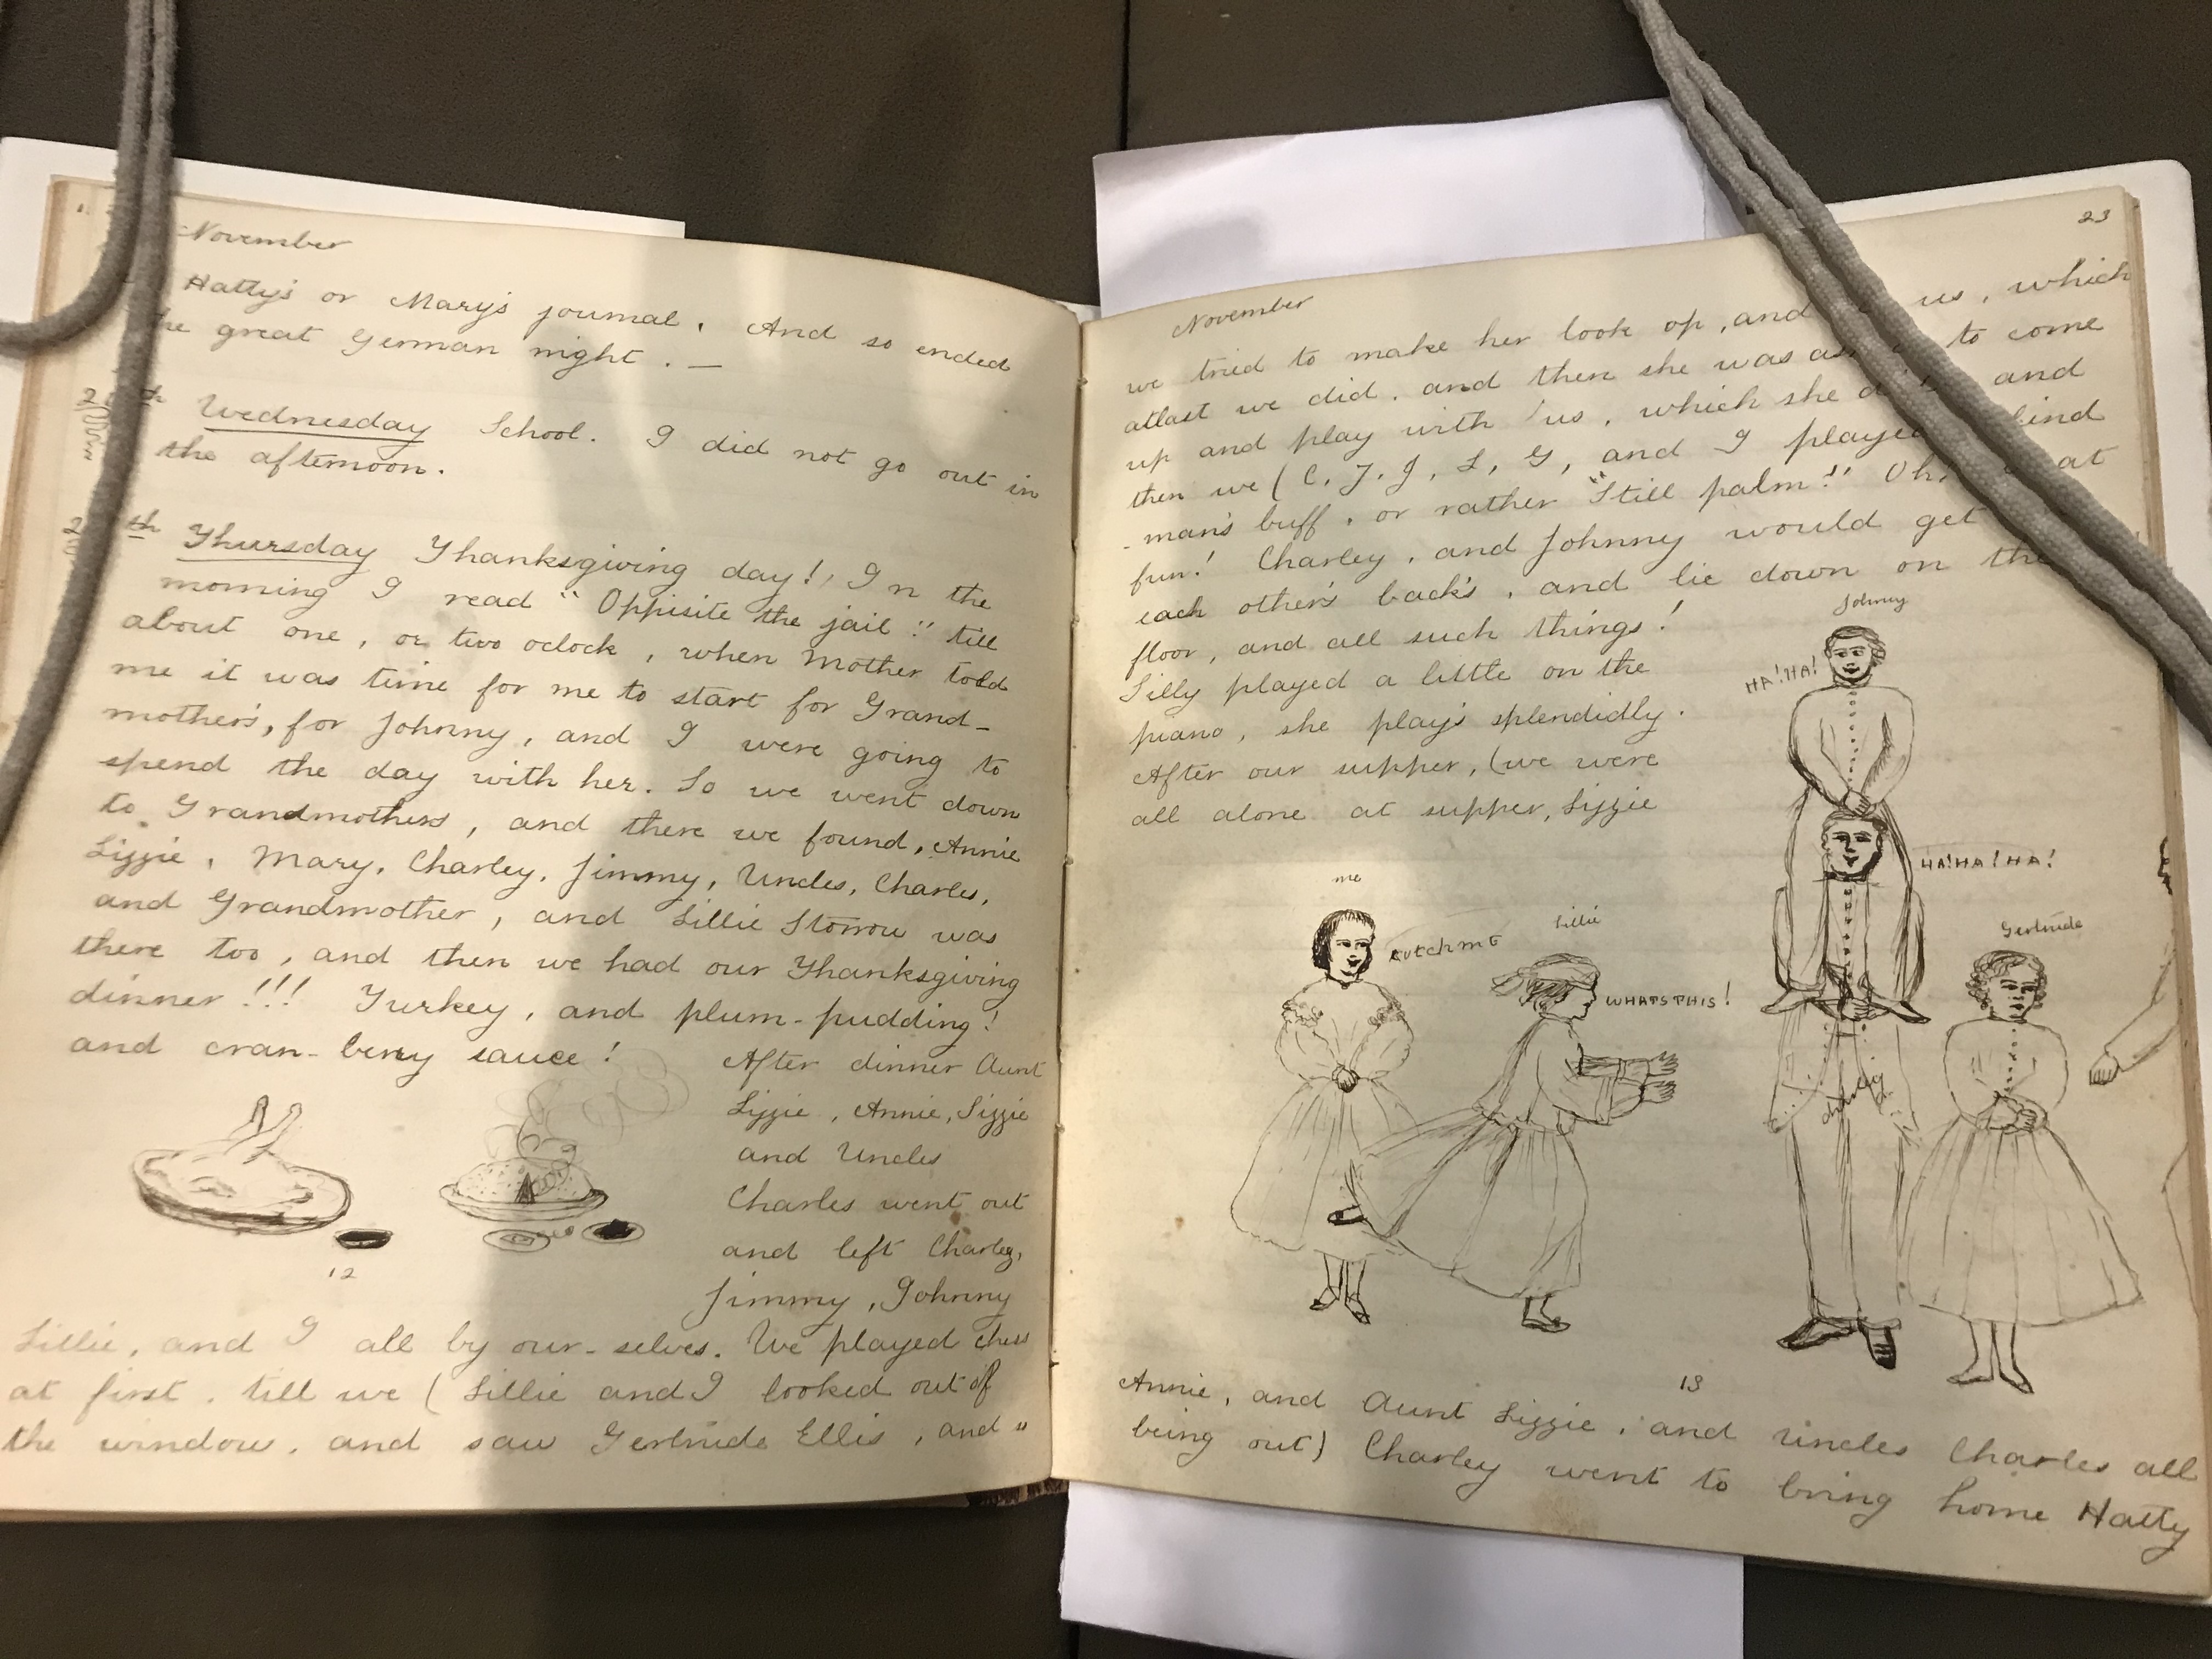 November
Hatty's or Mary's journal. And so ended
great German night. —
Wednesday School. I did not go out in
the afternoon.
th Thursday Thanksgiving day! In the
morning I read "Oppisite the jail" till
about one, or two oclock, when Mother told
me it was time for me to start for Grand-
mother's, for Johnny, and I were going to
spend the day with her. So we went down
to Grandmothers, and there we found, Annie
Lizzie, Mary, Charley, Jimmy, Uncles, Charles,
and Grandmother, and Lillie Storrow was
there too, and then we had our Thanksgiving
dinner!!! Turkey, and plum-pudding!
and cran-berry sauce!
After dinner Aunt
Lizzie, Annie, Lizzie
and Uncles
Charles went out
and left Charley,
Jimmy, Johnny
12
Lillie, and I all by our-selves. We played chess
at first, till we ( Lillie and I looked out of
the window, and saw Gertrude Ellis, and "
23
November
we tried to make her look op, and us, which
atlast we did, and then she was to come
up and play with us, which she and
then we ( C, J, J, L, G, and I played
- man's buff, or rather "Still palm!" Oh,
fun! Charley, and Johnny would get
each other's back's, and lie down on the
floor, and all such things!
Lilly played a little on the
piano, she play's splendidly.
After our supper, (we were
all alone at supper, Lizzie
Johnny
HA! HA!
HA! HA! HA!
me
Lillie
WHATS THIS!
Gertrude
13
Annie, and Aunt Lizzie, and uncles Charles all
being out) Charley went to bring home Hatty